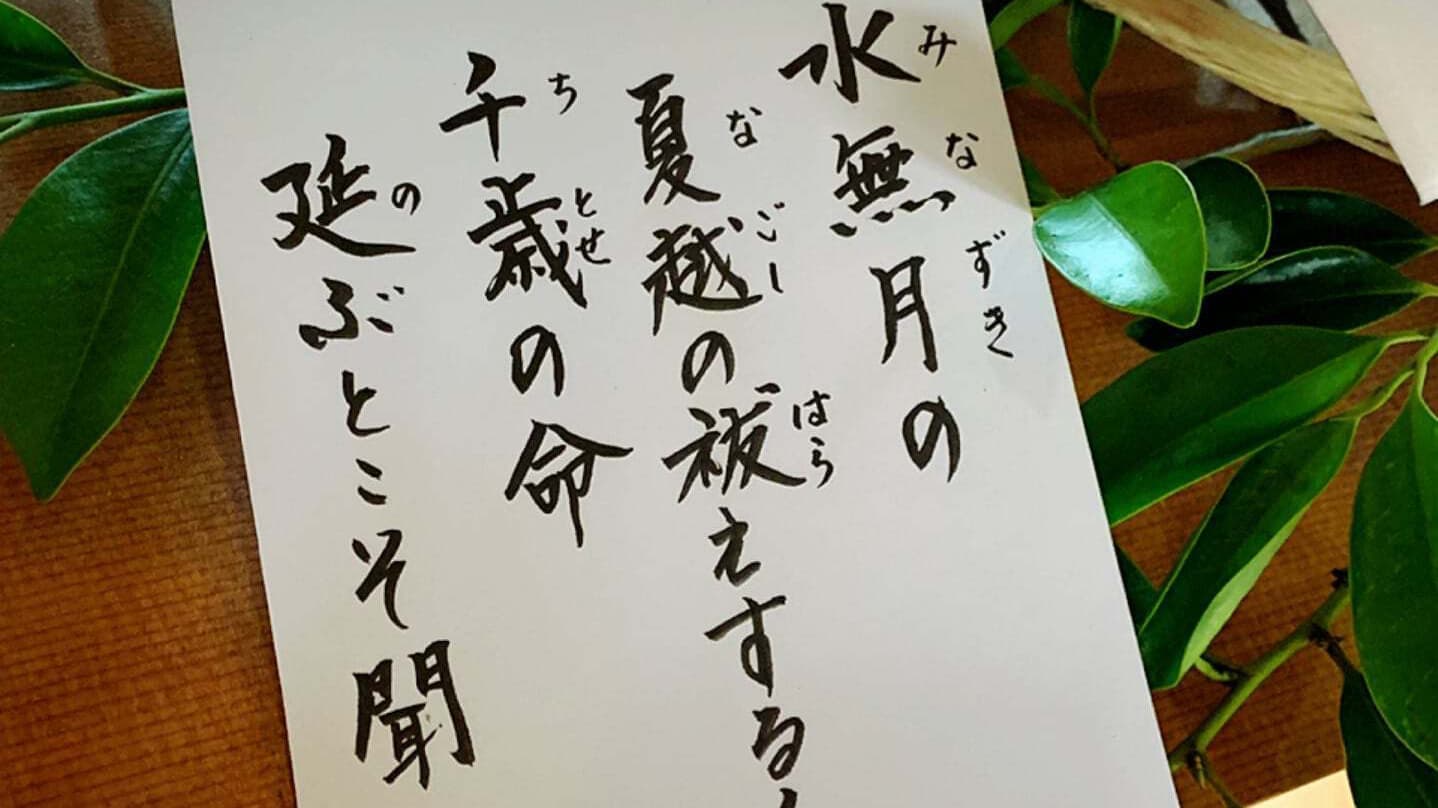 みなずき
水無月の
なごし はら
夏越の祓えする
ちとせ
千歳の命
の
延ぶとこそ聞